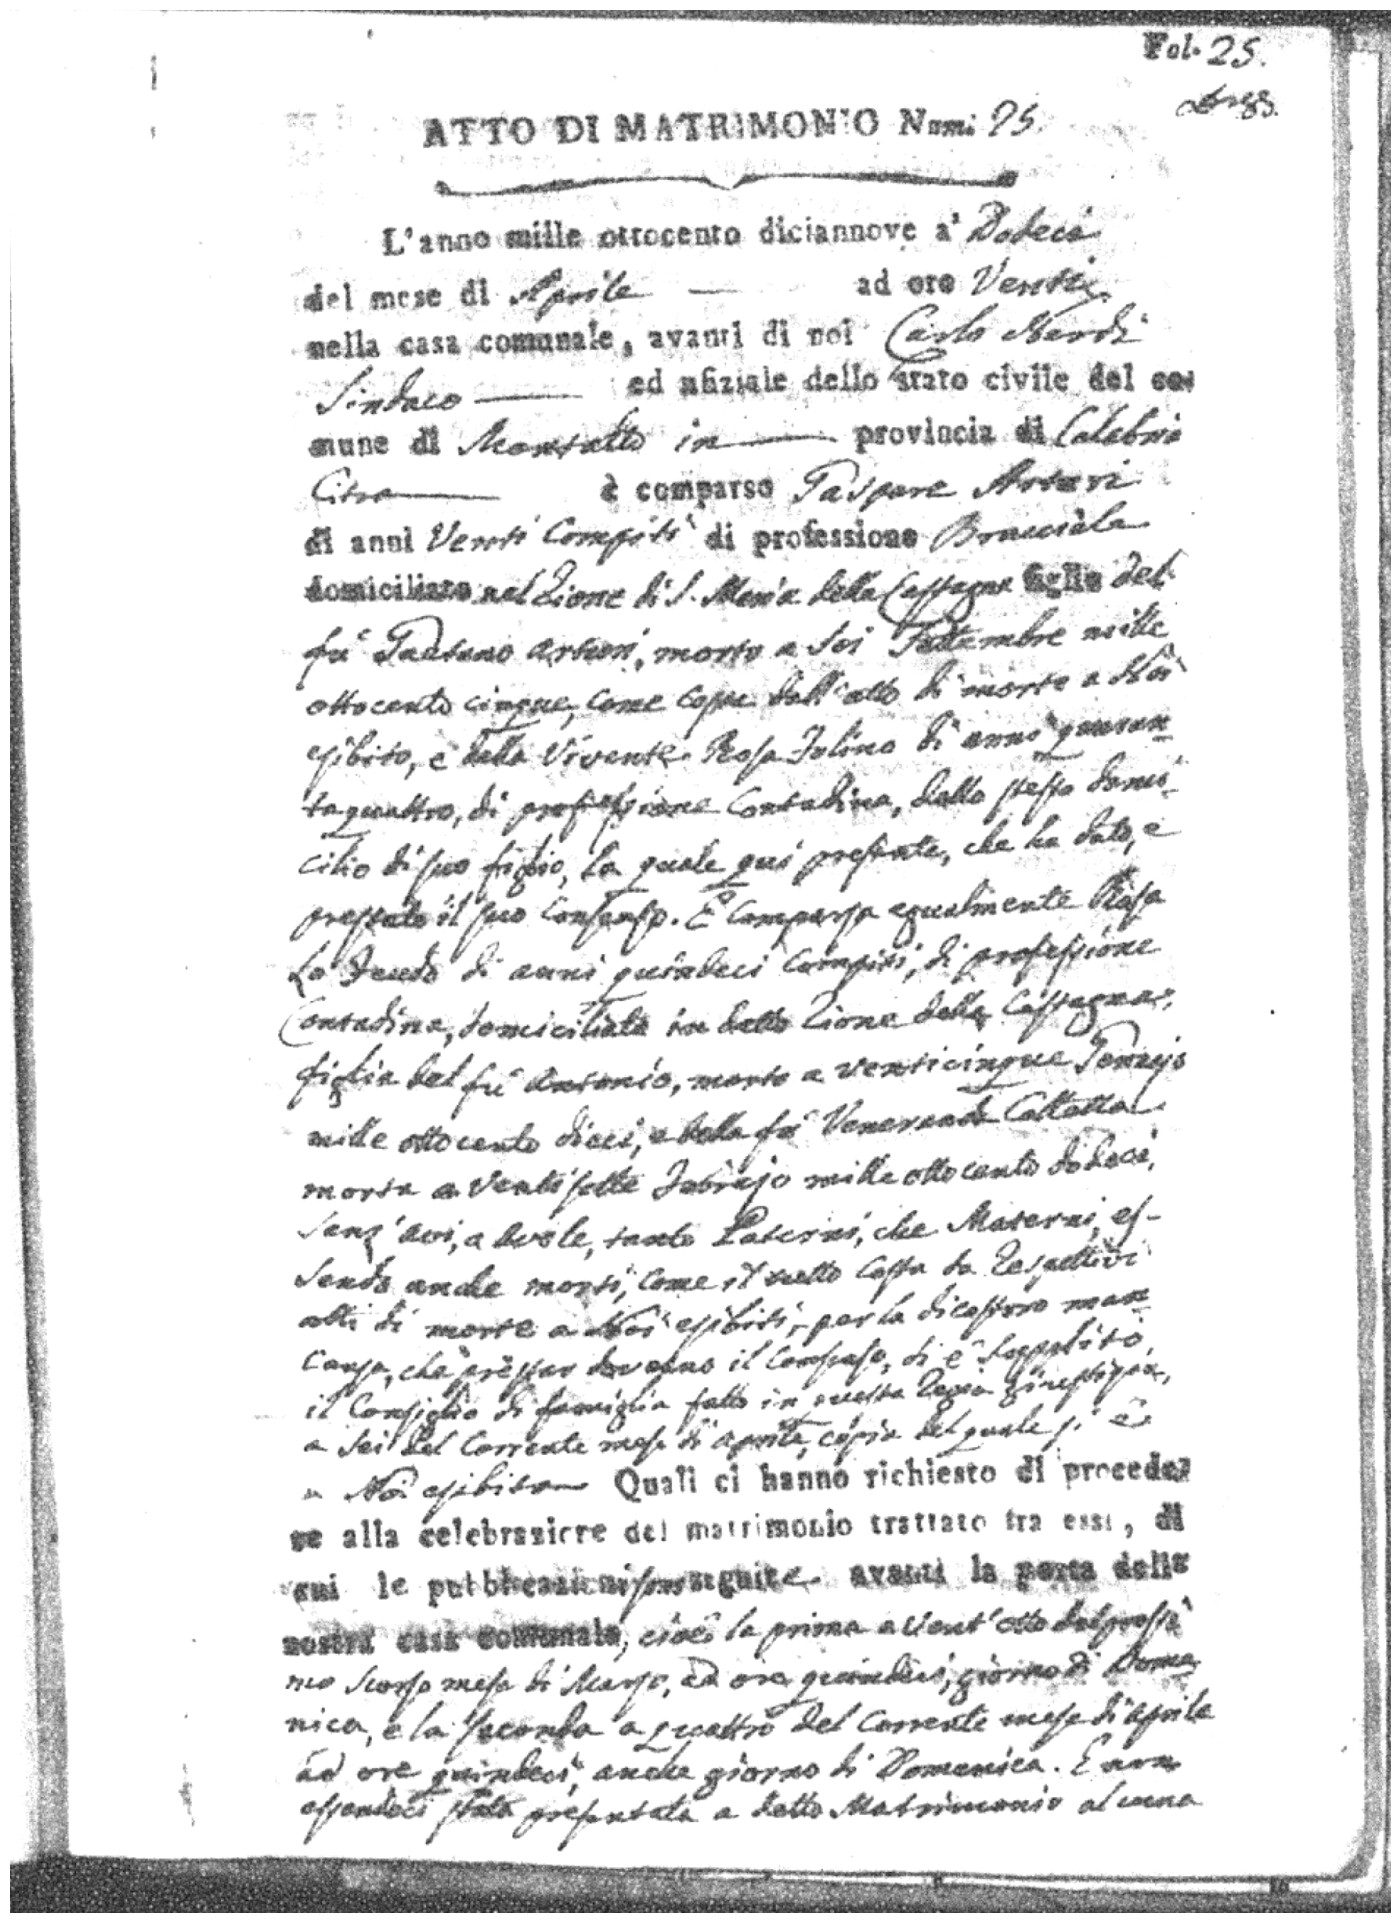 Fol. 25.
ATTO DI MATRIMONIO Num: 25.
L'anno mille ottocento diciannove a' Dodeci
del mese di Aprile — ad ore Venti
nella casa comunale, avanti di noi Carlo Nardi
Sindaco — ed ufiziale dello stato civile del co-
mune di Montalto in — provincia di Calabria
Citra — è comparso Gaspare Arturi
di anni Venti Compiti di professione Bracciale
domiciliato nel Rione di S. Maria della Castagna figlio del
fù Gaetano Arturi, morto a Sei Settembre mille
ottocento cinque, come costa dall'atto di morte a Noi
esibito, e della vivente Rosa Iulino di anni quaran-
taquattro, di professione Contadina, dello stesso domi-
cilio di suo figlio, la quale qui presente, che ha dato, e
prestato il suo consenso. È comparsa egualmente Rosa
Lo Feudo di anni quindeci compiti, di professione
Contadina, domiciliata in detto Rione della Castagna,
figlia del fù Antonio, morto a venticinque Gennajo
mille ottocento dieci, e della fù Veneranda
morta a Ventisette Febrajo mille ottocento dodeci,
senz'avi, a avole, tanto Paterni, che Materni, es-
sendo anche morti, come il tutto costa da respettivi
atti di morte a Noi esibiti, per la di costoro man-
canza, che prestar dovevano il consenso, si è supplito,
il Consiglio di famiglia fatto in questa Regia
a Sei del corrente mese di Aprile, copia del quale si è
a Noi esibita — Quali ci hanno richiesto di procede-
re alla celebrazione del matrimonio trattato fra essi, di
cui le pubblicazioni sono seguite avanti la porta della
nostra casa comunale, cioè la prima a vent'otto del prossi-
mo scorso mese di Marzo, ad ore quindeci, giorno di Dome-
nica, e la seconda a quattro del corrente mese di Aprile
ad ore quindeci, anche giorno di Domenica. E non
essendoci stata presentata a detto Matrimonio alcuna